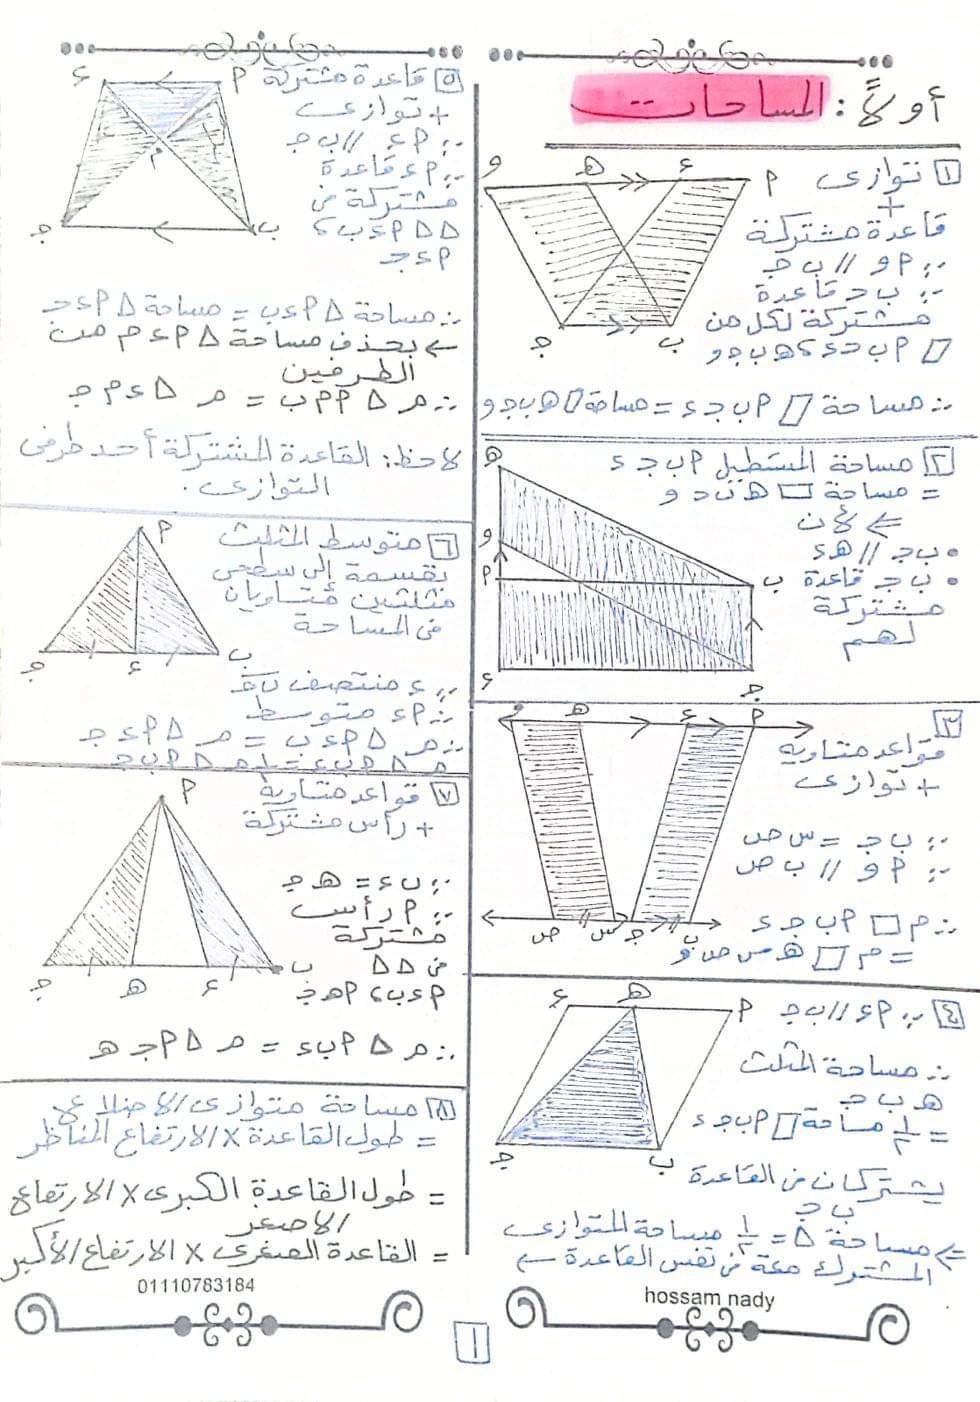 أولاً: المساحات
١ توازى
+
قاعدة مشتركة
∵ P و // ب جـ
∵ ب جـ قاعدة
مشتركة لكل من
▱ P ب جـ ء ، هـ ب جـ و
∴ مساحة ▱ P ب جـ ء = مساحة ▱ هـ ب جـ و
٢ مساحة المستطيل P ب جـ ء
= مساحة ▱ هـ ب جـ و
⇐ لأن
• ب جـ // هـ ء
• ب جـ قاعدة
مشتركة
لهم
٣ قواعد متساوية
+ توازى
∵ ب جـ = س ص
∵ P و // ب ص
∴ م ▱ P ب جـ ء
= م ▱ هـ س ص و
٤ ∵ P ء // ب جـ
∴ مساحة المثلث
هـ ب جـ
= ١/٢ مساحة ▱ P ب جـ ء
يشتركان فى القاعدة
ب جـ
⇐ مساحة Δ = ١/٢ مساحة المتوازى
المشترك معه فى نفس القاعدة
hossam nady
٥ قاعدة مشتركة
+ توازى
∵ P ء // ب جـ
∵ P ء قاعدة
مشتركة فى
Δ Δ P ء ب ،
P ء جـ
∴ مساحة Δ P ء ب = مساحة Δ P ء جـ
← بحذف مساحة Δ P ء م من
الطرفين
∴ م Δ P م ب = م Δ ء م جـ
لاحظ: القاعدة المشتركة أحد طرفى
التوازى .
٦ متوسط المثلث
يقسمة إلى سطحى
مثلثين متساويان
فى المساحة
∵ ء منتصف ب جـ
∴ P ء متوسط
∴ م Δ P ء ب = م Δ P ء جـ
م Δ P ب ء = ١/٢ م Δ P ب جـ
٧ قواعد متساوية
+ رأس مشتركة
∵ ب ء = هـ جـ
∵ P رأس
مشتركة
فى Δ Δ
P ء ب ، P هـ جـ
∴ م Δ P ب ء = م Δ P جـ هـ
٨ مساحة متوازى الاضلاع
= طول القاعدة × الارتفاع المناظر
= طول القاعدة الكبرى × الارتفاع
الاصغر
= القاعدة الصغرى × الارتفاع الأكبر
01110783184
١